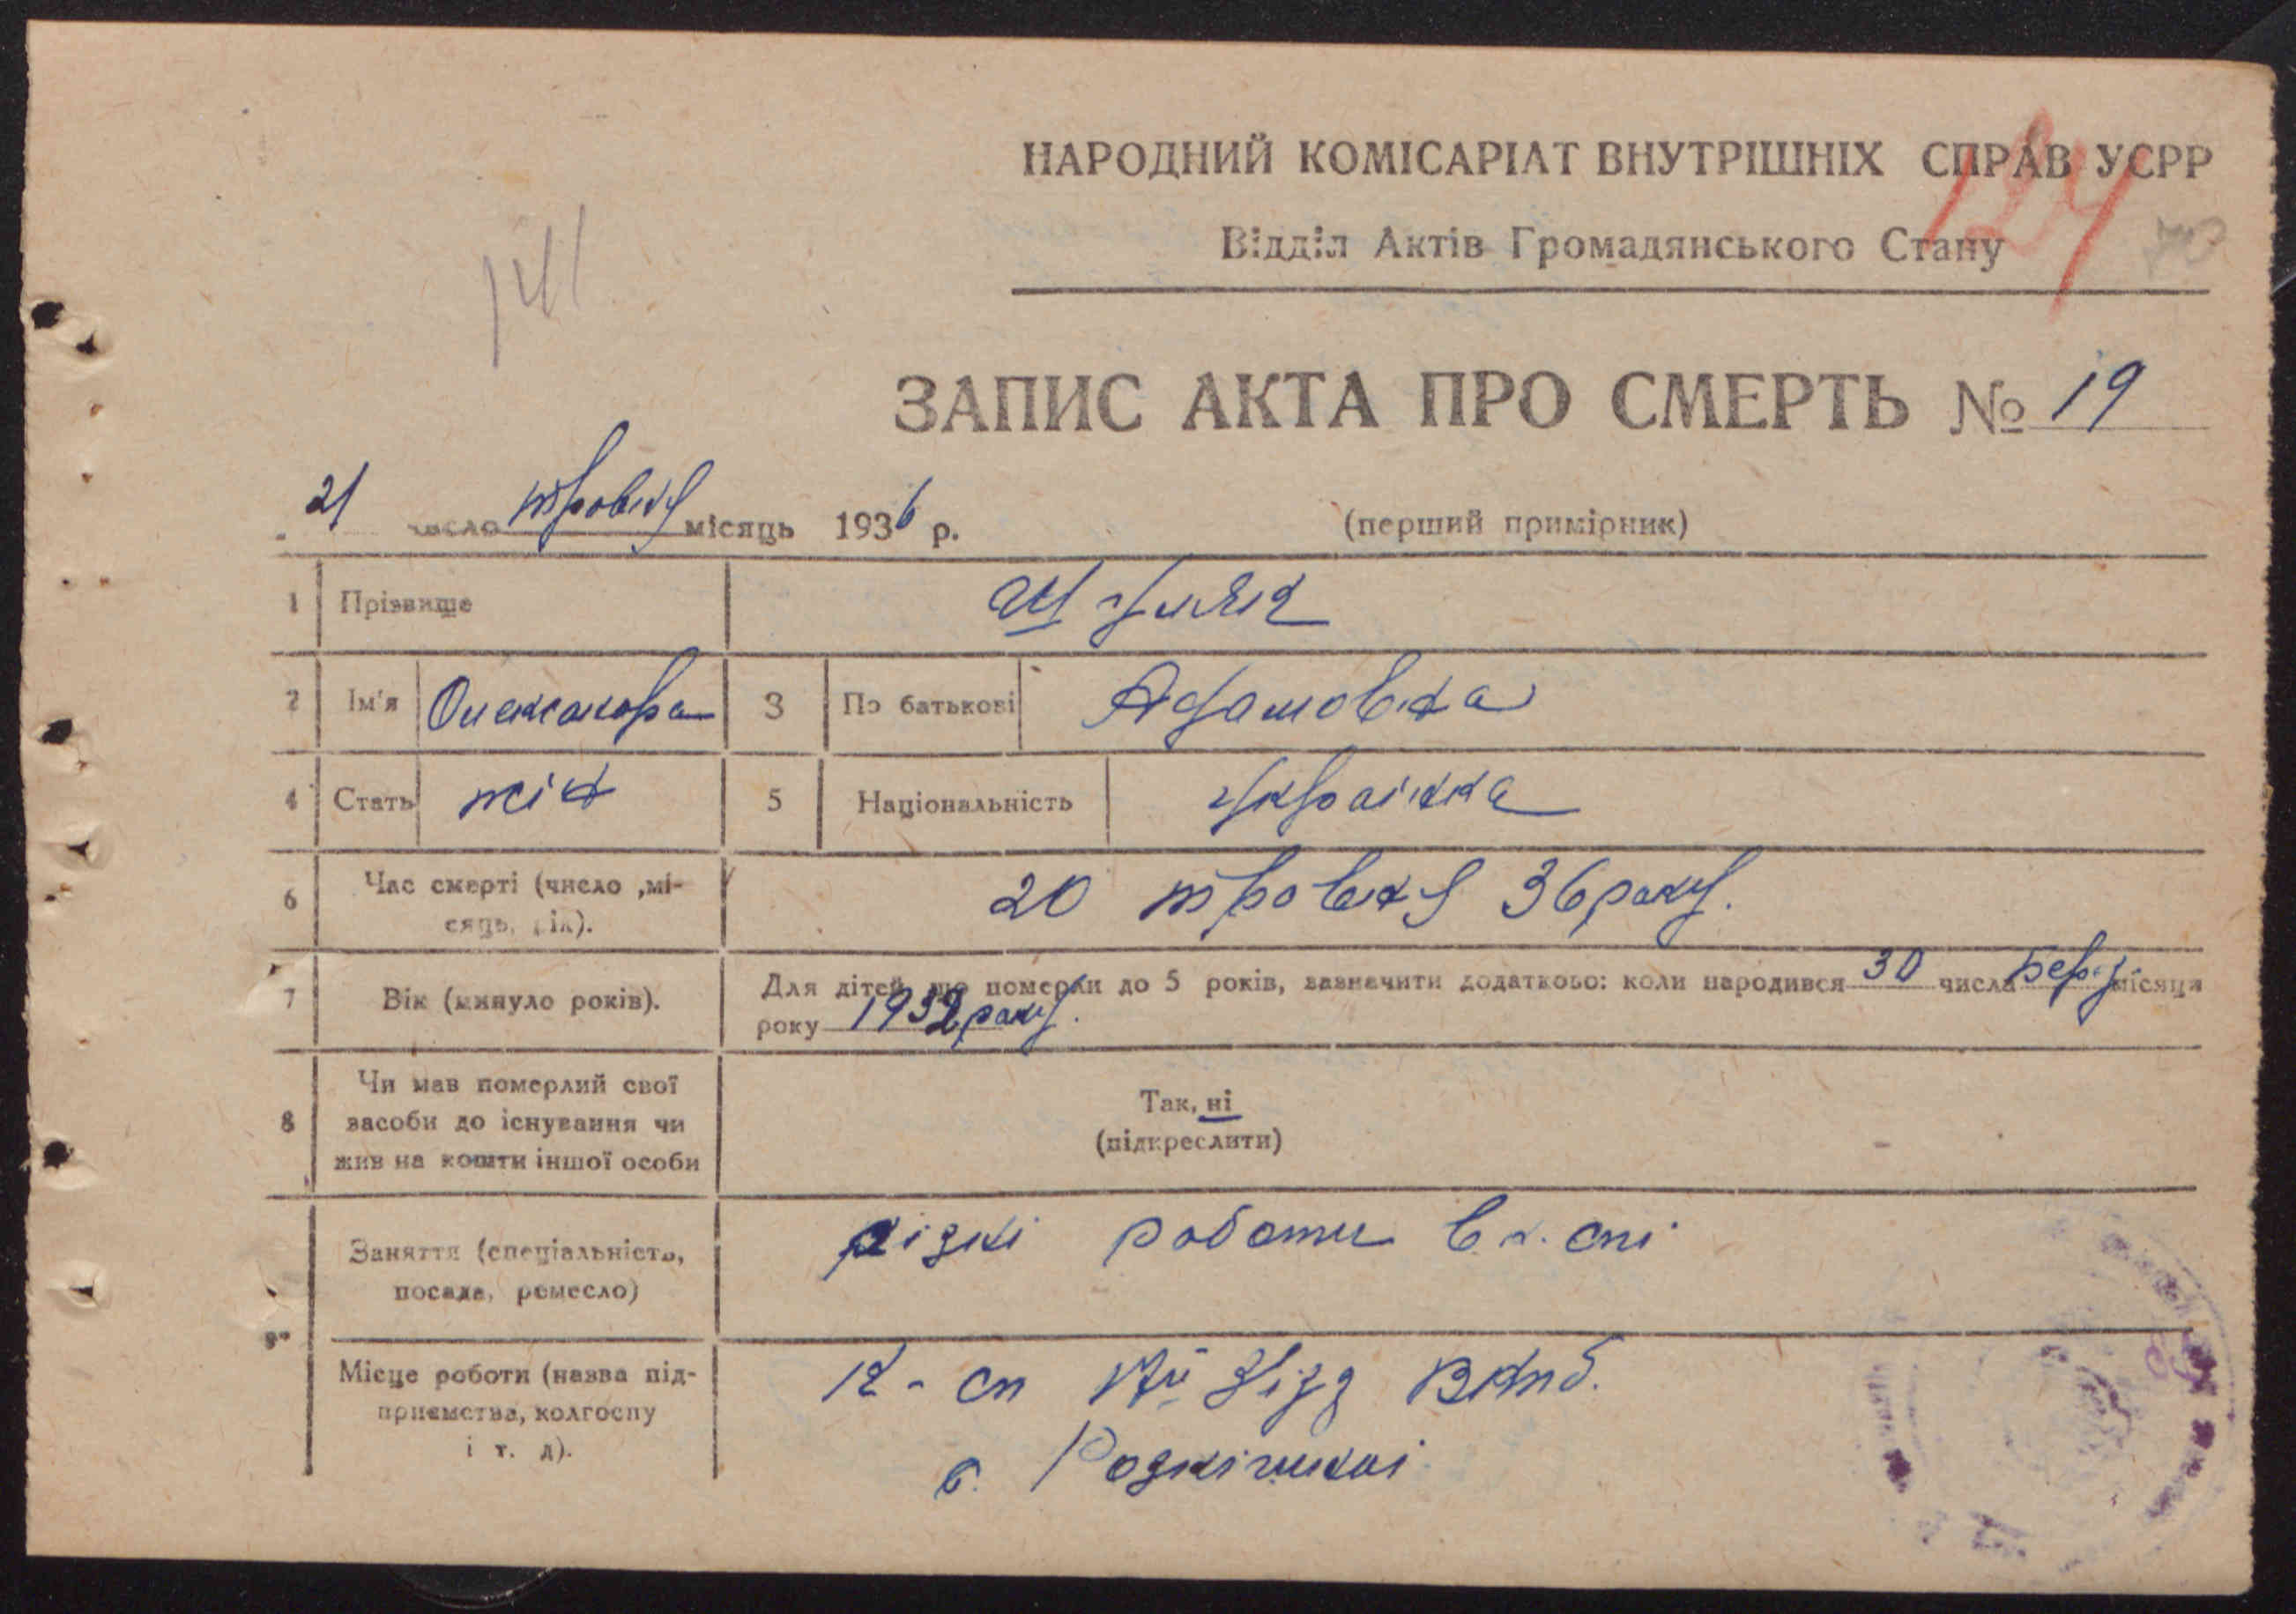 НАРОДНИЙ КОМІСАРІАТ ВНУТРІШНІХ СПРАВ УСРР
124
Відділ Актів Громадянського Стану
141
ЗАПИС АКТА ПРО СМЕРТЬ № 19
21 число травня місяць 1936 р.
(перший примірник)
1 Прізвище Шуляк
2 Ім'я Олександра 3 По батькові Адамовна
4 Стать жін 5 Національність українка
6 Час смерті (число ,мі-
сяць, рік). 20 травня 36 року.
7 Вік (минуло років). Для дітей, що померли до 5 років, зазначити додатково: коли народився 30 числа Берез місяця
року 1932 року.
8 Чи мав померлий свої
засоби до існування чи
жив на кошти іншої особи
Так, ні
(підкреслити)
Заняття (спеціальність,
посада, ремесло)
різні роботи в к. спі
9
Місце роботи (назва під-
приємства, колгоспу
і т. д).
К-сп з'їзд ВКПб.
с.